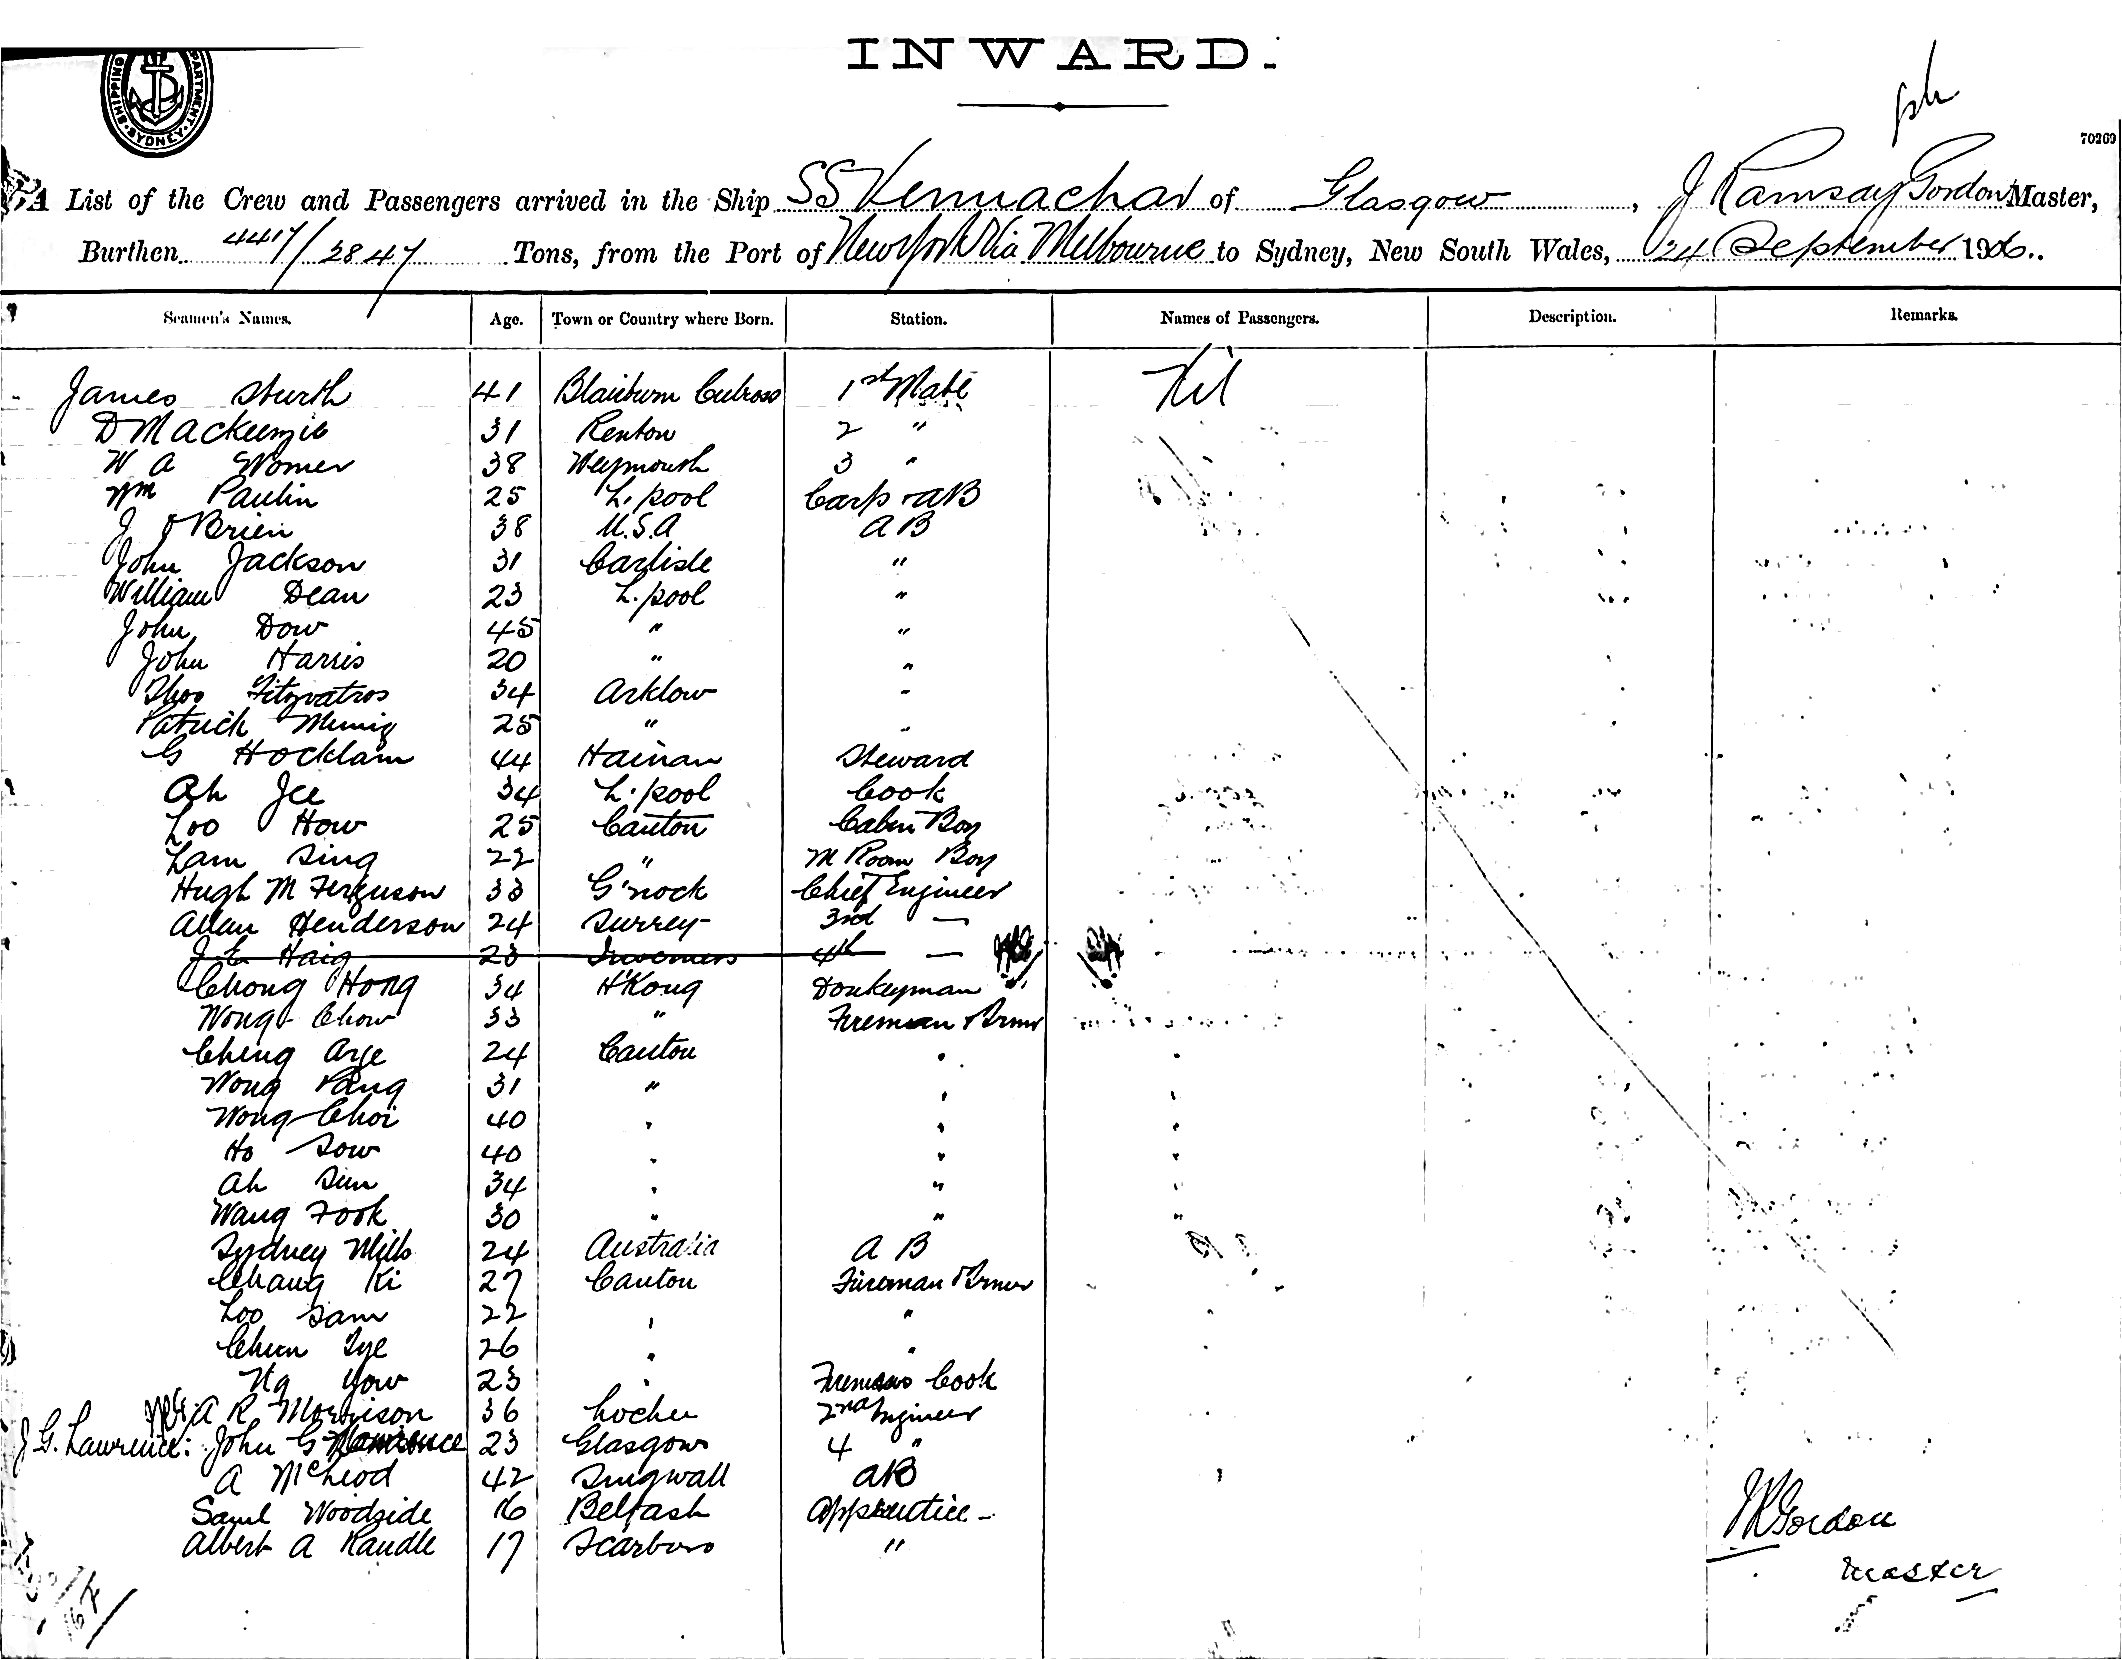 INWARD.
SHIPPING DEPARTMENT. SYDNEY
70269
A List of the Crew and Passengers arrived in the Ship SS Vennachar of Glasgow, J Ramsay Gordon Master,
Burthen 4417/2847 Tons, from the Port of New York Via Melbourne to Sydney, New South Wales, 24 September 1906.
Seamen's Names. Age. Town or Country where Born. Station. Names of Passengers. Description. Remarks.
James Sturth 41 Blairburn Culross 1st Mate Nil
D Mackenzie 31 Renton 2 "
W A Womer 38 Weymouth 3 "
Wm Paulin 25 L.pool Carp + AB
J O'Brien 38 U.S.A AB
John Jackson 31 Carlisle "
William Dean 23 L.pool "
John Dow 45 " "
John Harris 20 " "
Thos 34 Arklow "
Patrick 25 " "
G Hocklam 44 Hainan Steward
Ah Jee 34 L.pool Cook
Loo How 25 Canton Cabin Boy
Lam Sing 22 " M Room Boy
Hugh M Ferguson 33 G'nock Chief Engineer
Allan Henderson 24 Surrey 3rd —
J E Haig 23 4th —
Chong Hong 34 H'Kong Donkeyman
Wong Chow 33 " Fireman & Trmr
Ching Aye 24 Canton "
Wong Pang 31 " "
Wong Choi 40 " "
Ho Sow 40 " "
Ah Sun 34 " "
Wang Fook 30 " "
Sydney Mills 24 Australia AB
Chang Ki 27 Canton Fireman & Trmer
Loo Sam 22 " "
Chun Tye 26 " "
Ng Yow 23 " Firemans Cook
A R Morrison 36 Lochee 2nd Engineer
J G. Lawrence: John G Lawrence 23 Glasgow 4 "
A McLeod 42 Dingwall AB
Saml Woodside 16 Belfast Apprentice -
Albert A Randle 17 Scarboro "
J R Gordon
Master